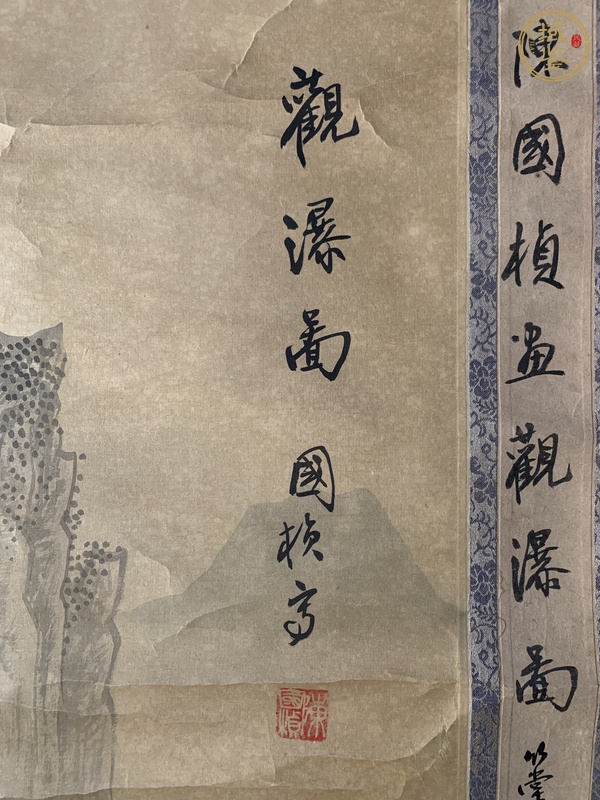 陳國楨畫觀瀑圖
觀瀑圖
國楨寫
陳國楨